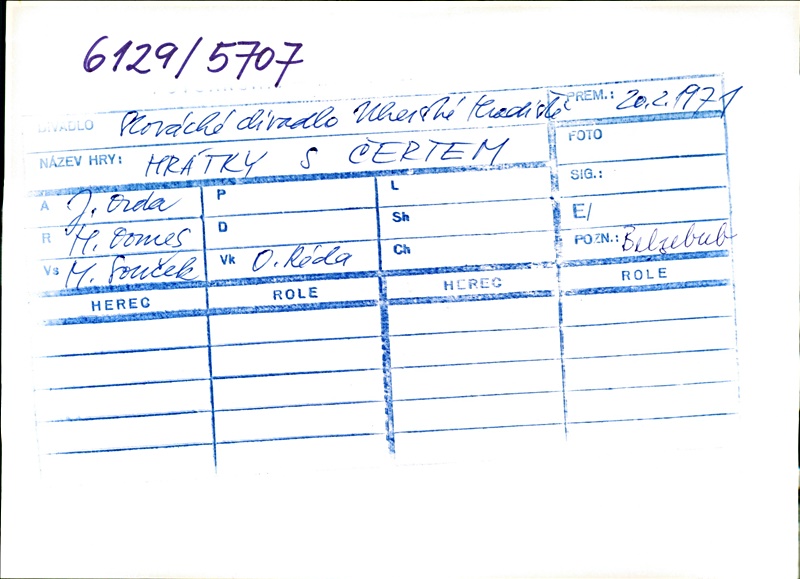 6129/5707
DIVADLO Slovácké divadlo Uherské Hradiště PREM.: 20.2.1971
NÁZEV HRY: HRÁTKY S ČERTEM FOTO
SIG.:
A J. Drda P L
E/
R M. Domeš D Sh
POZN.: Belzebub
Vs M. Souček Vk O. Réda Ch
HEREC ROLE HEREC ROLE